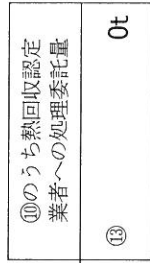 ⑩のうち熱回収認定
業者への処理委託量
⑬ 0t